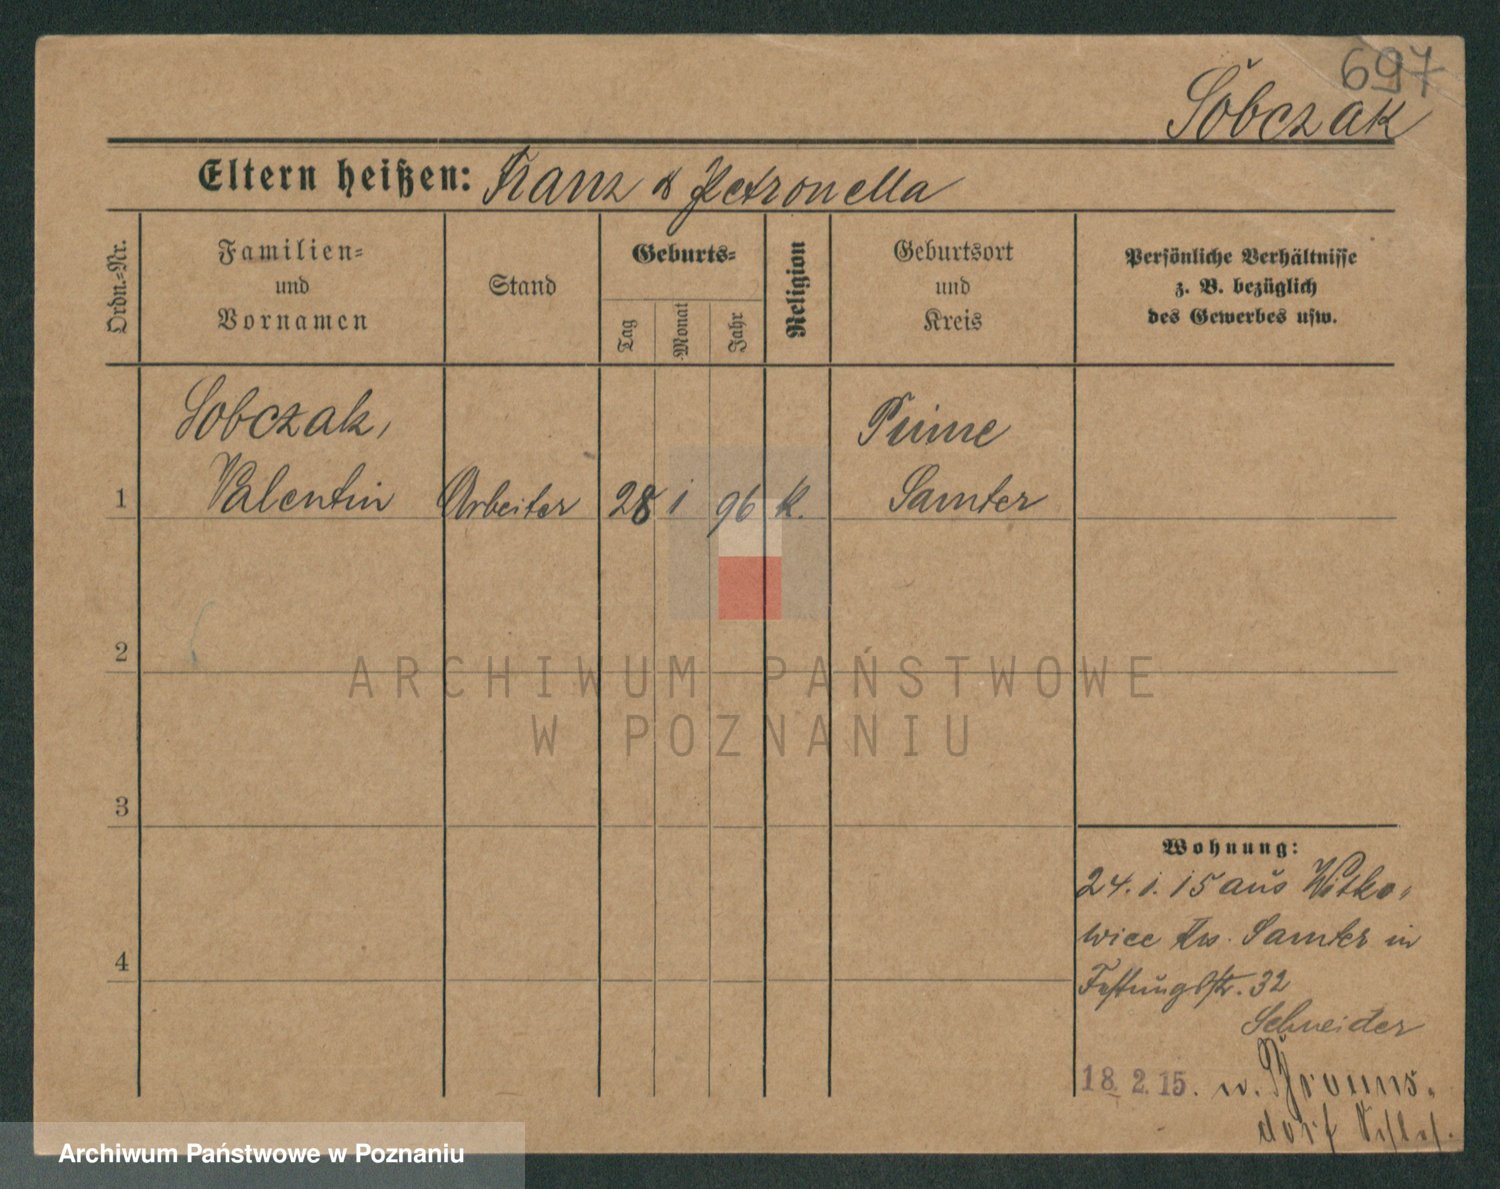 697
Sobczak
Eltern heißen: Franz & Petronella
Ordn.-Nr.
Familien-
und
Vornamen
Stand
Geburts-
Tag
Monat
Jahr
Religion
Geburtsort
und
Kreis
Persönliche Verhältnisse
z. B. bezüglich
des Gewerbes usw.
Sobczak,
Pinne
1 Valentin Arbeiter 28 1 96 K. Samter
2
ARCHIWUM PAŃSTWOWE
W POZNANIU
3
Wohnung:
24.1.15 aus Witko-
wice Krs. Samter in
4
Festungsstr. 32
Schneider
18. 2. 15. n.
dorf
Archiwum Państwowe w Poznaniu